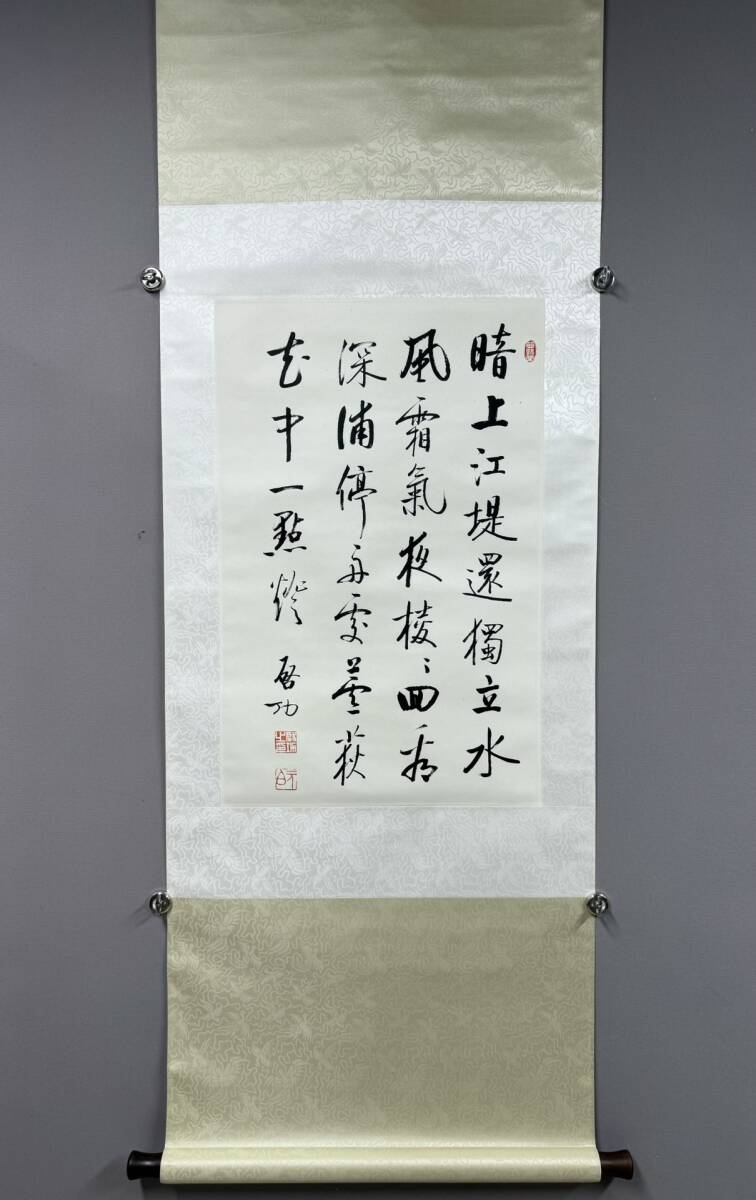 暗上江堤還獨立水
風霜氣夜棱棱回看
深浦停舟處蘆荻
花中一點燈
啟功